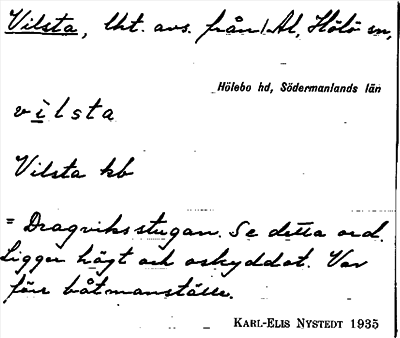 Vilsta, lht. avs. från 1 Al, Hölö sn,
Hölebo hd, Södermanlands län
vilsta
Vilsta kb
= Dragviksstugan. Se detta ord.
Ligger högt och oskyddat. Var
förr båtmanställe.
KARL-ELIS NYSTEDT 1935